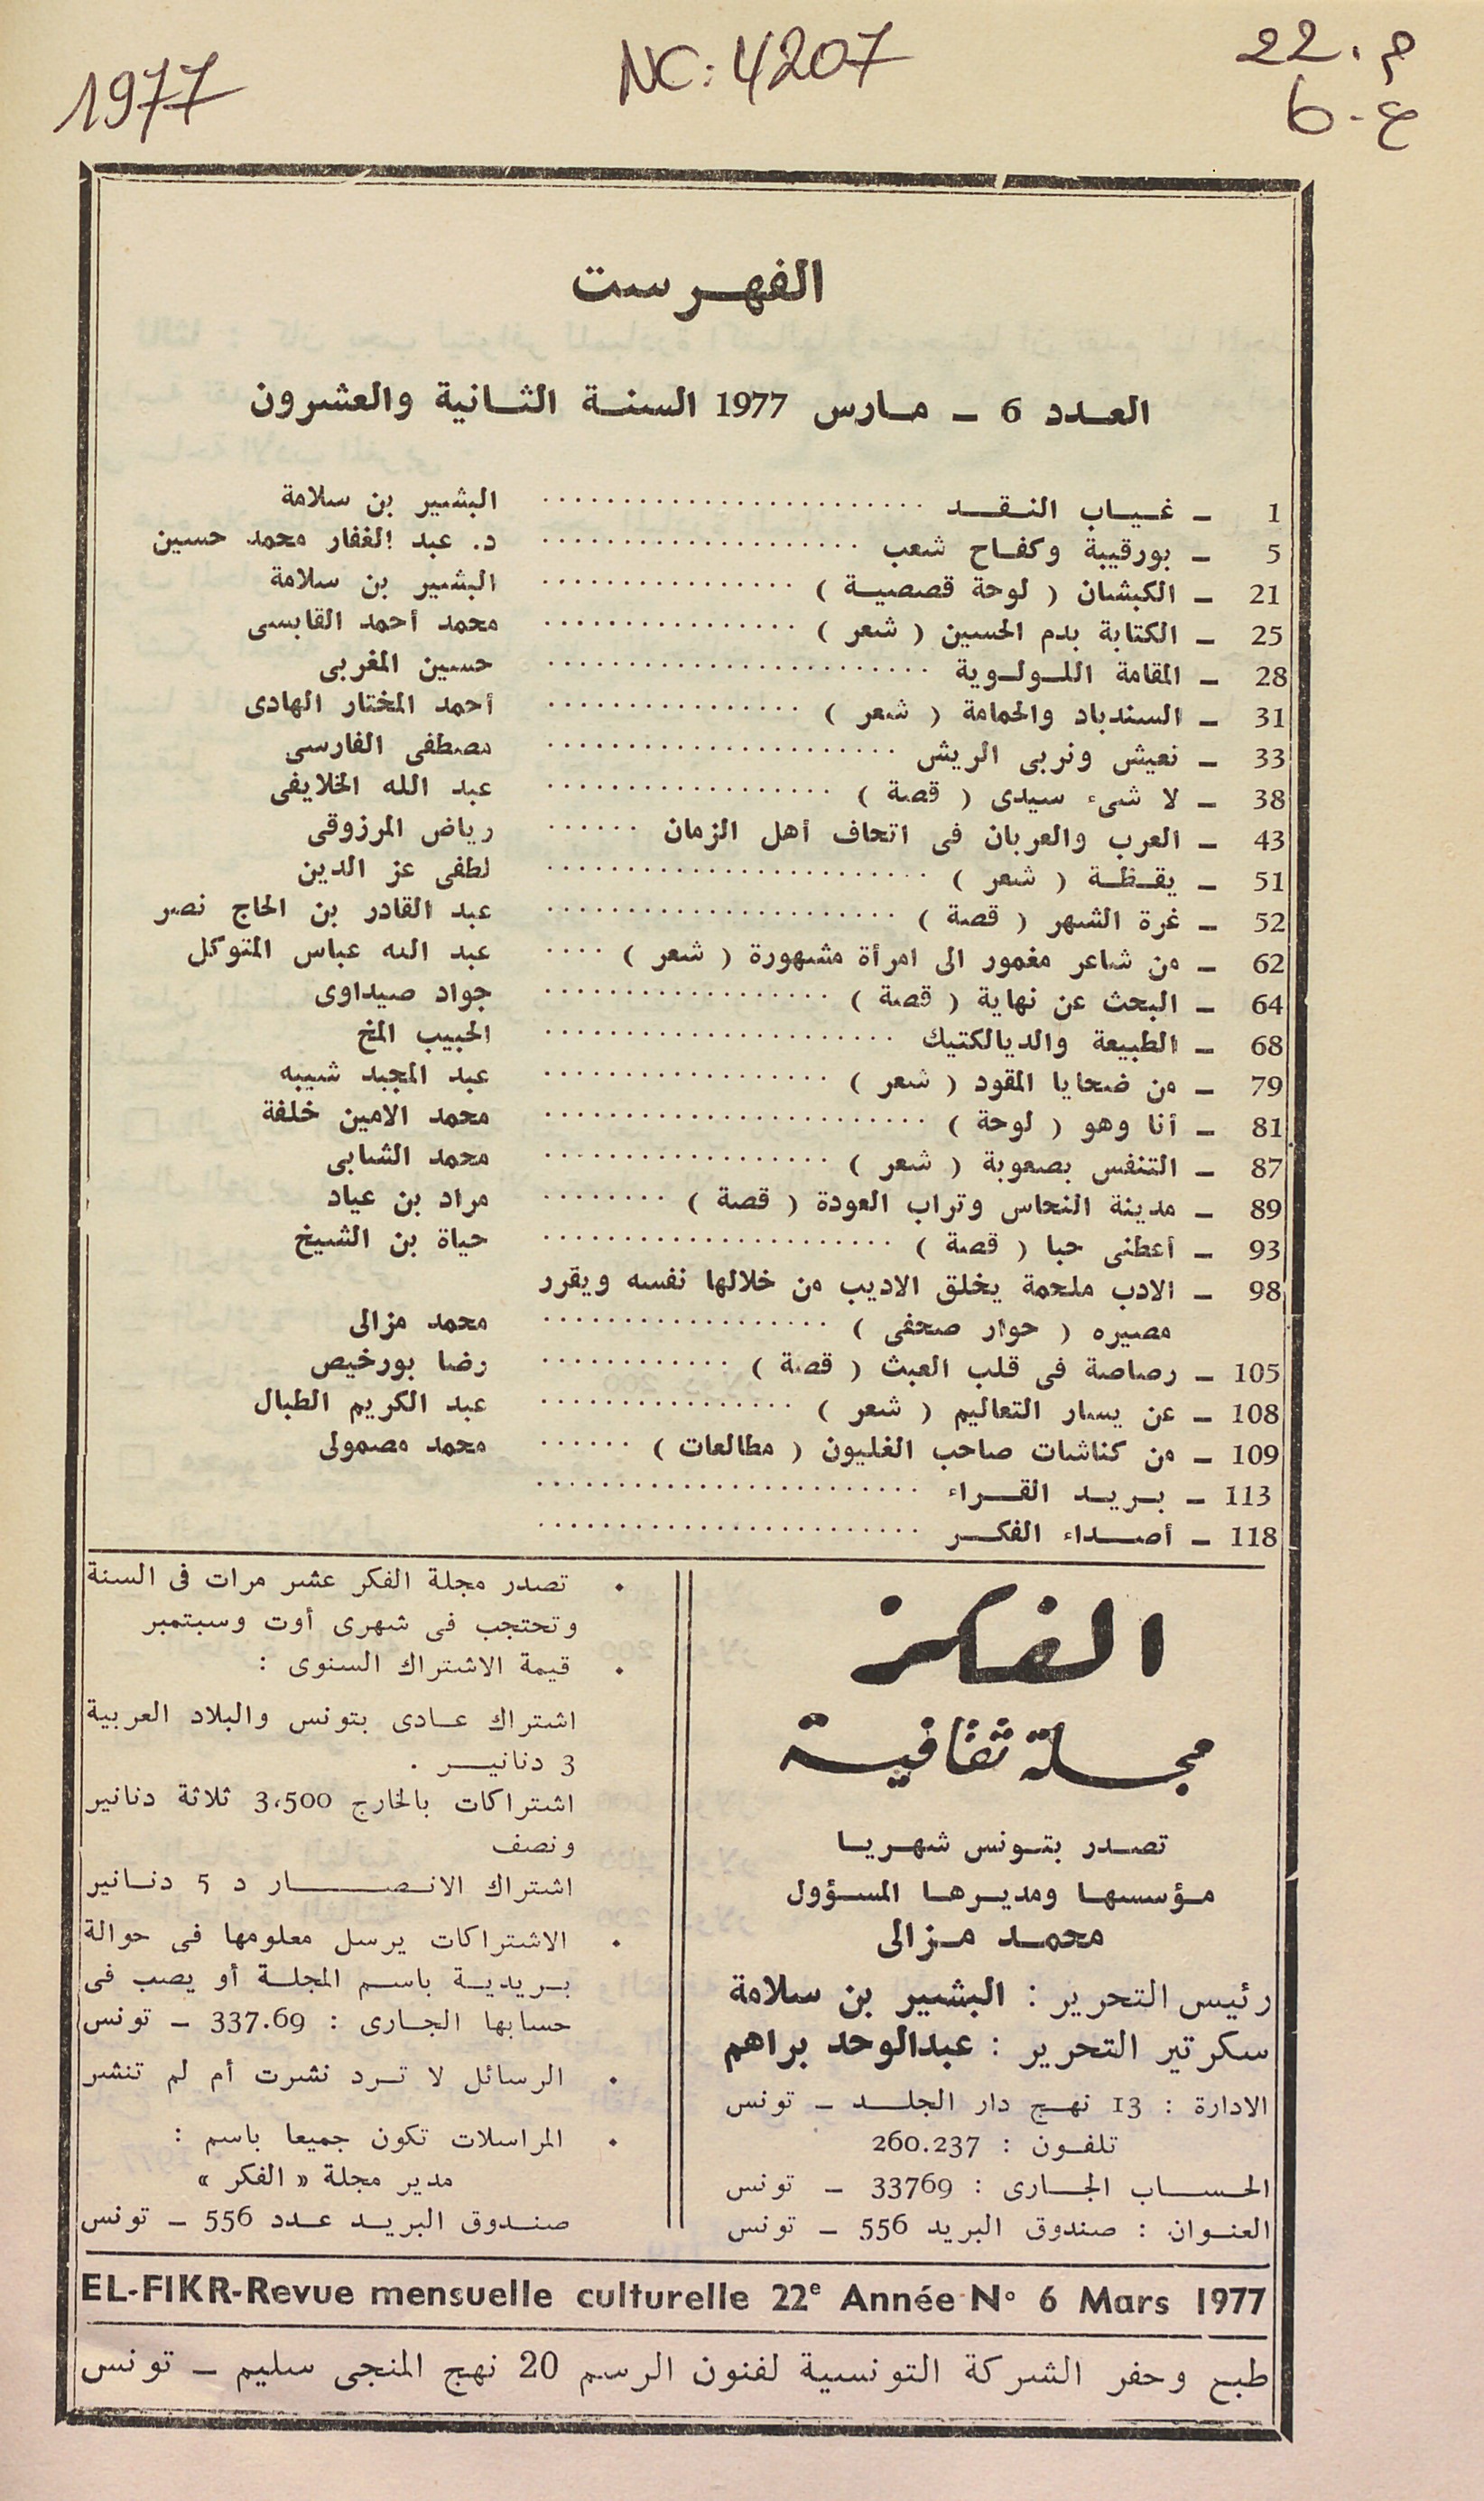 1977
NC: 4207
م. 22
ع. 6
الفهرست
العدد 6 ـ مارس 1977 السنة الثانية والعشرون
1 ـ غياب النقد ........................ البشير بن سلامة
5 ـ بورقيبة وكفاح شعب .................... د. عبد الغفار محمد حسين
21 ـ الكبشان ( لوحة قصصية ) ................ البشير بن سلامة
25 ـ الكتابة بدم الحسين ( شعر ) ................ محمد أحمد القابسى
28 ـ المقامة اللولوية ........................ حسين المغربى
31 ـ السندباد والحمامة ( شعر ) ................ أحمد المختار الهادى
33 ـ نعيش ونربى الريش ...................... مصطفى الفارسى
38 ـ لا شىء سيدى ( قصة ) .................. عبد الله الخلايفى
43 ـ العرب والعربان فى اتحاف أهل الزمان ...... رياض المرزوقى
51 ـ يقظة ( شعر ) ........................ لطفى عز الدين
52 ـ غرة الشهر ( قصة ) ...................... عبد القادر بن الحاج نصر
62 ـ من شاعر مغمور الى امرأة مشهورة ( شعر ) .... عبد الله عباس المتوكل
64 ـ البحث عن نهاية ( قصة ) .................. جواد صيداوى
68 ـ الطبيعة والديالكتيك ...................... الحبيب المخ
79 ـ من ضحايا المقود ( شعر ) .................. عبد المجيد شيبه
81 ـ أنا وهو ( لوحة ) ........................ محمد الامين خلفة
87 ـ التنفس بصعوبة ( شعر ) .................. محمد الشابى
89 ـ مدينة النحاس وتراب العودة ( قصة ) ........ مراد بن عياد
93 ـ أعطنى حبا ( قصة ) ...................... حياة بن الشيخ
98 ـ الادب ملحمة يخلق الاديب من خلالها نفسه ويقرر
مصيره ( حوار صحفى ) .................. محمد مزالى
105 ـ رصاصة فى قلب العبث ( قصة ) ............ رضا بورخيص
108 ـ عن يسار التعاليم ( شعر ) ................ عبد الكريم الطبال
109 ـ من كناشات صاحب الغليون ( مطالعات ) ...... محمد مصمولى
113 ـ بريد القراء ........................
118 ـ أصداء الفكر ........................
الفكر
مجلة ثقافية
تصدر بتونس شهريا
مؤسسها ومديرها المسؤول
محمد مزالى
رئيس التحرير : البشير بن سلامة
سكرتير التحرير : عبدالوحد براهم
الادارة : 13 نهج دار الجلد ـ تونس
تلفون : 260.237
الحساب الجارى : 33769 ـ تونس
العنوان : صندوق البريد 556 ـ تونس
• تصدر مجلة الفكر عشر مرات فى السنة
وتحتجب فى شهرى أوت وسبتمبر
• قيمة الاشتراك السنوى :
اشتراك عادى بتونس والبلاد العربية
3 دنانير .
اشتراكات بالخارج 3،500 ثلاثة دنانير
ونصف
اشتراك الانصار د 5 دنانير
• الاشتراكات يرسل معلومها فى حوالة
بريدية باسم المجلة أو يصب فى
حسابها الجارى : 337.69 ـ تونس
• الرسائل لا ترد نشرت أم لم تنشر
• المراسلات تكون جميعا باسم :
مدير مجلة « الفكر »
صندوق البريد عدد 556 ـ تونس
EL-FIKR-Revue mensuelle culturelle 22e Année N° 6 Mars 1977
طبع وحفر الشركة التونسية لفنون الرسم 20 نهج المنجى سليم ـ تونس